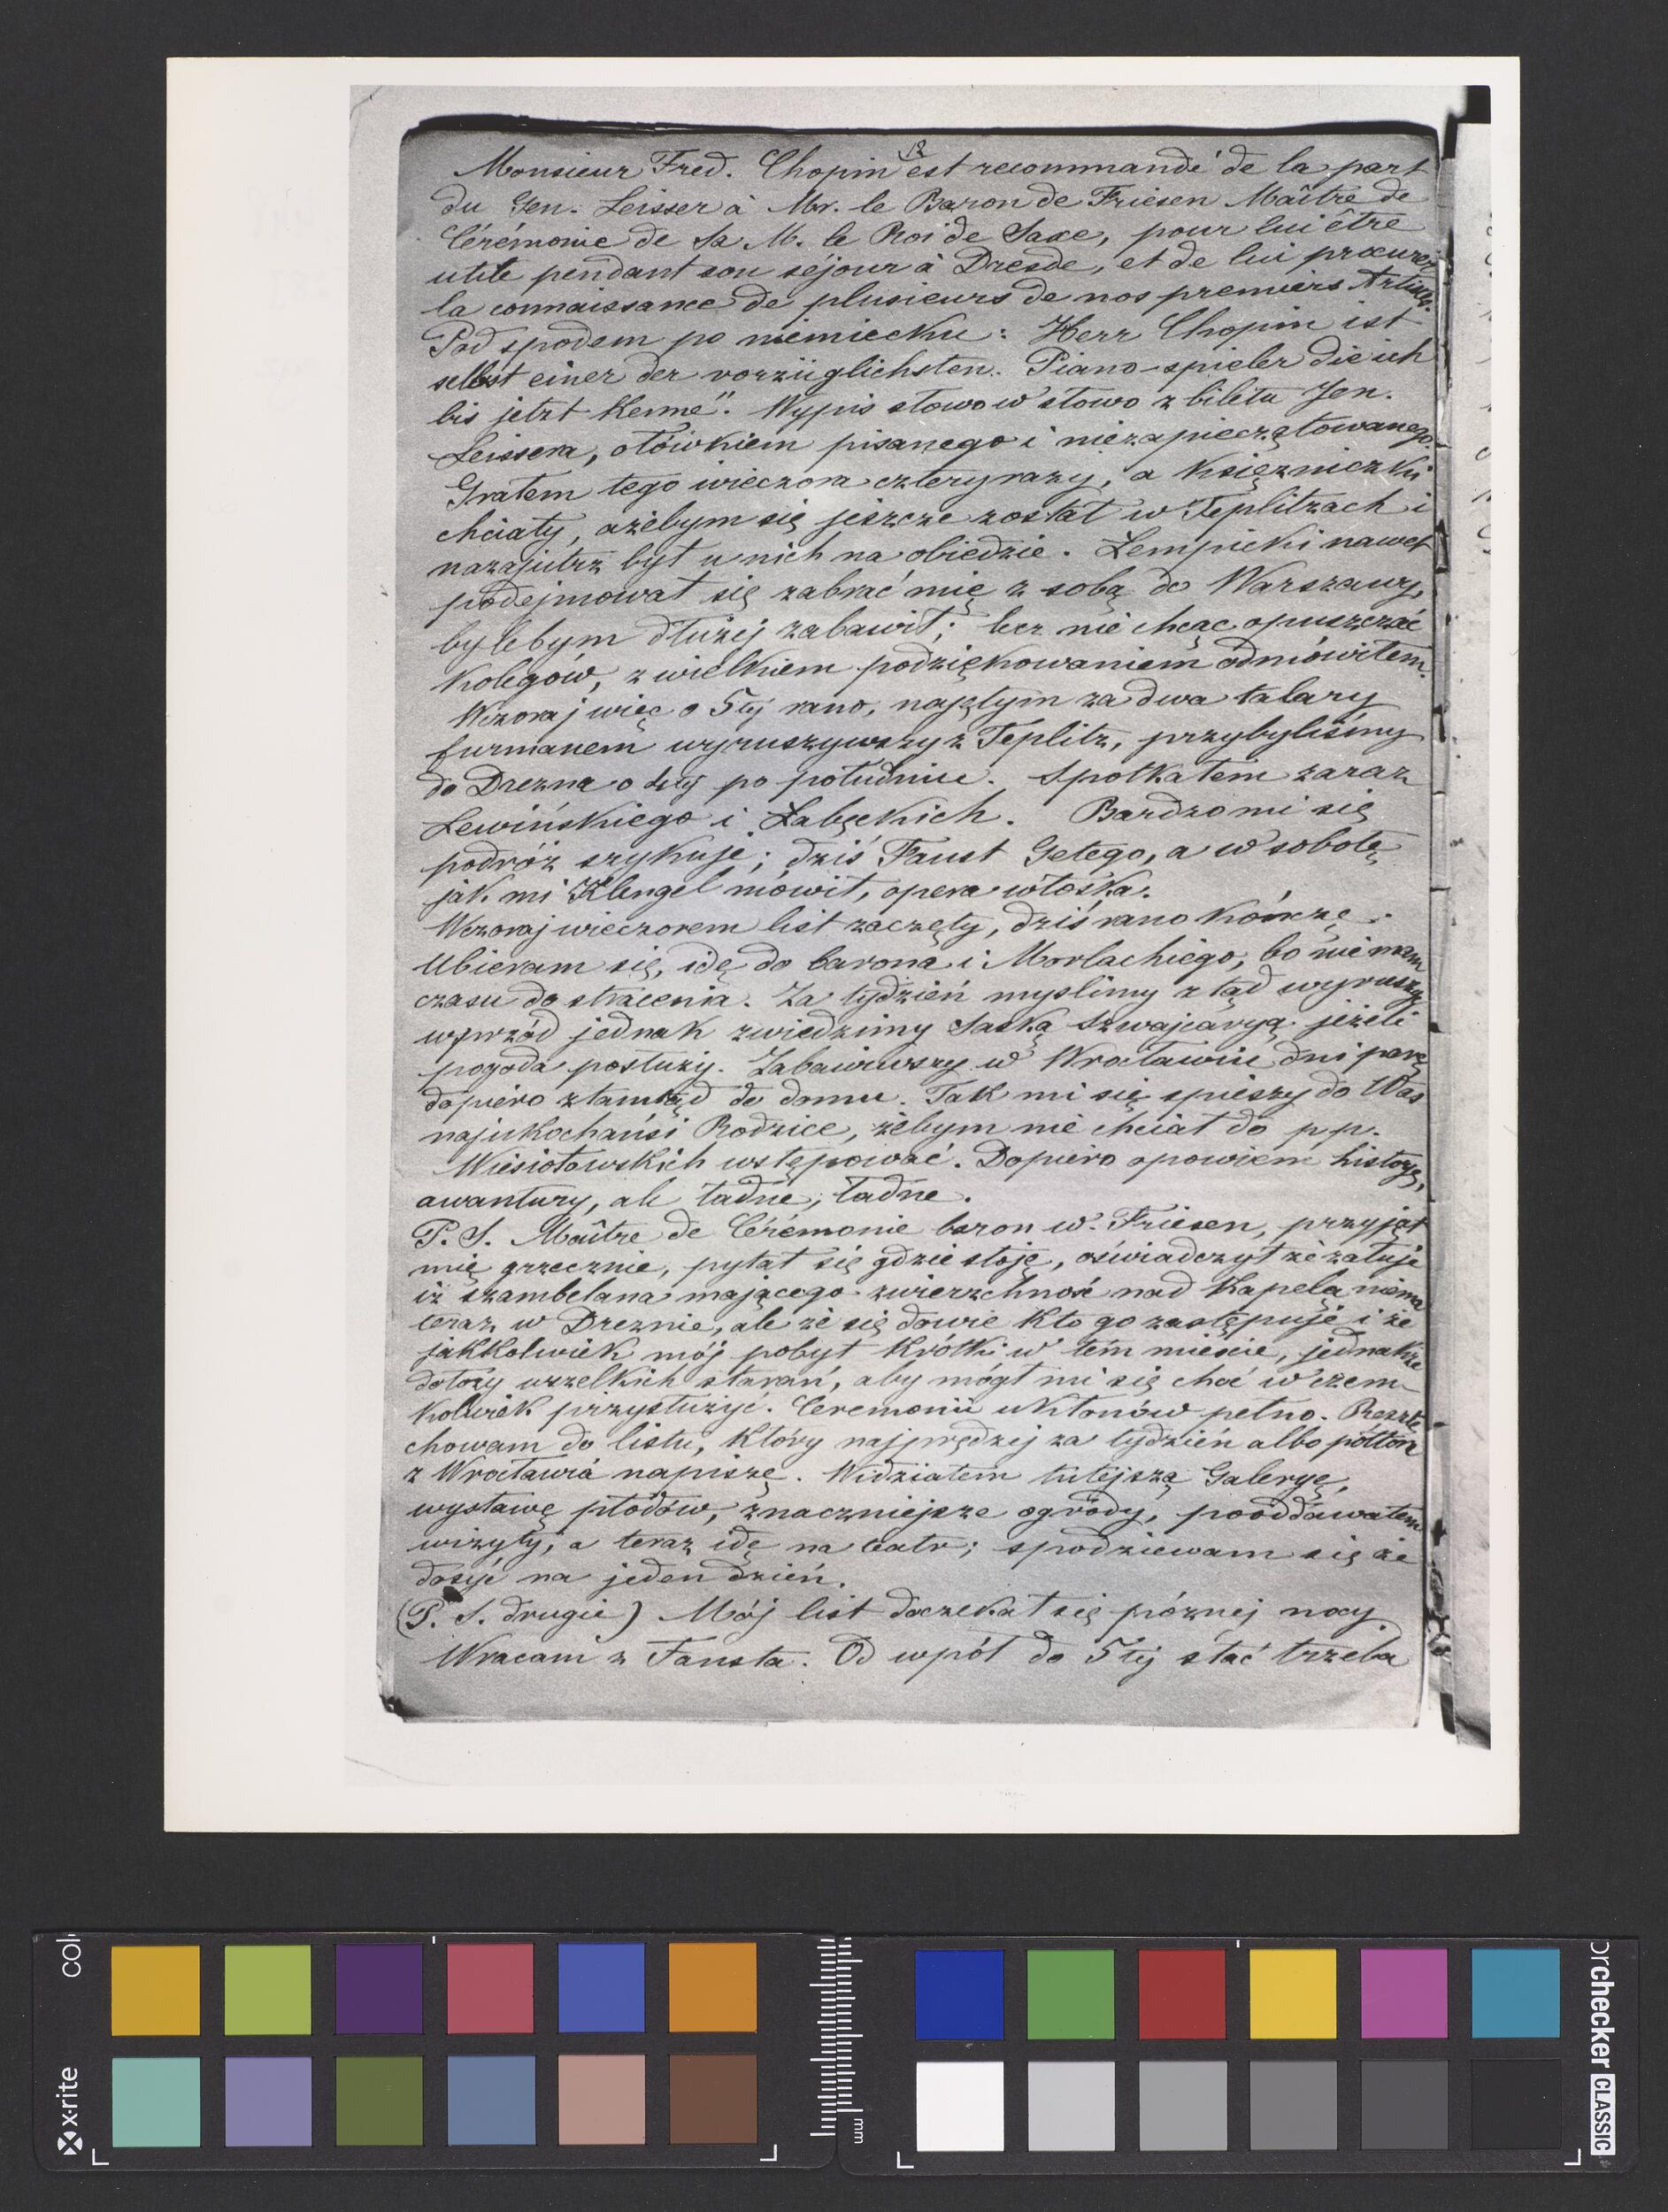 Monsieur Fred. Chopin est recommandé de la part
du Gen. Leisser à Mr. le Baron de Friesen Maître de
Cérémonie de Sa M. le Roi de Saxe, pour lui être
utile pendant son séjour à Dresde, et de lui procurer
la connaissance de plusieurs de nos premiers Artistes.
Pod spodem po niemiecku: Herr Chopin ist
selbst einer der vorzüglichsten Piano-spieler die ich
bis jetzt kenne". Wypis słowo w słowo z biletu Jen.
Leissera, ołówkiem pisanego i niezapieczętowanego.
Grałem tego wieczora cztery razy, a księżniczki
chciały, ażebym się jeszcze został w Teplitzach i
nazajutrz był u nich na obiedzie. Łempicki nawet
podejmował się zabrać mię z sobą do Warszawy,
bylebym dłużej zabawił; lecz nie chcąc opuszczać
kolegów, z wielkiem podziękowaniem odmówiłem.
Wczoraj więc o 5tej rano, najętym za dwa talary
furmanem wyruszywszy z Teplitz, przybyliśmy
do Drezna o 4tej po południu. Spotkałem zaraz
Lewińskiego i Łabęckich. Bardzo mi się
podróż szykuje; dziś Faust Getego, a w sobotę
jak mi Klengel mówił, opera włoska.
Wczoraj wieczorem list zaczęty, dziś rano kończę.
Ubieram się, idę do barona i Morlachiego, bo nie mam
czasu do stracenia. Za tydzień myślimy ztąd wyruszyć
wprzód jednak zwiedzimy Saską Szwajcaryą jeżeli
pogoda posłuży. Zabawiwszy w Wrocławiu dni parę
dopiero ztamtąd do domu. Tak mi się spieszy do Was
najukochańsi Rodzice, żebym nie chciał do pp.
Wiesiołowskich wstępować. Dopiero opowiem historye,
awantury, ale ładne, ładne.
P. S. Maître de Cérémonie baron w. Friesen, przyjął
mię grzecznie, pytał się gdzie stoję, oświadczył że żałuje
iż szambelana mającego zwierzchność nad Kapelą niema
teraz w Dreznie, ale że się dowie kto go zastępuje i że
jakkolwiek mój pobyt krótki w tém mieście, jednakże
dołoży wszelkich starań, aby mógł mi się choć w czem-
kolwiek przysłużyć. Ceremonii ukłonów pełno. Resztę
chowam do listu, który najprędzej za tydzień albo półtora
z Wrocławia napiszę. Widziałem tutejszą Galeryę,
wystawę płodów, znaczniejsze ogrody, pooddawałem
wizyty, a teraz idę na teatr; spodziewam się że
dosyć na jeden dzień.
(P. S. drugie) Mój list doczekał się późnej nocy.
Wracam z Fausta. Od wpół do 5tej stać trzeba
x-rite
mm
orchecker CLASSIC